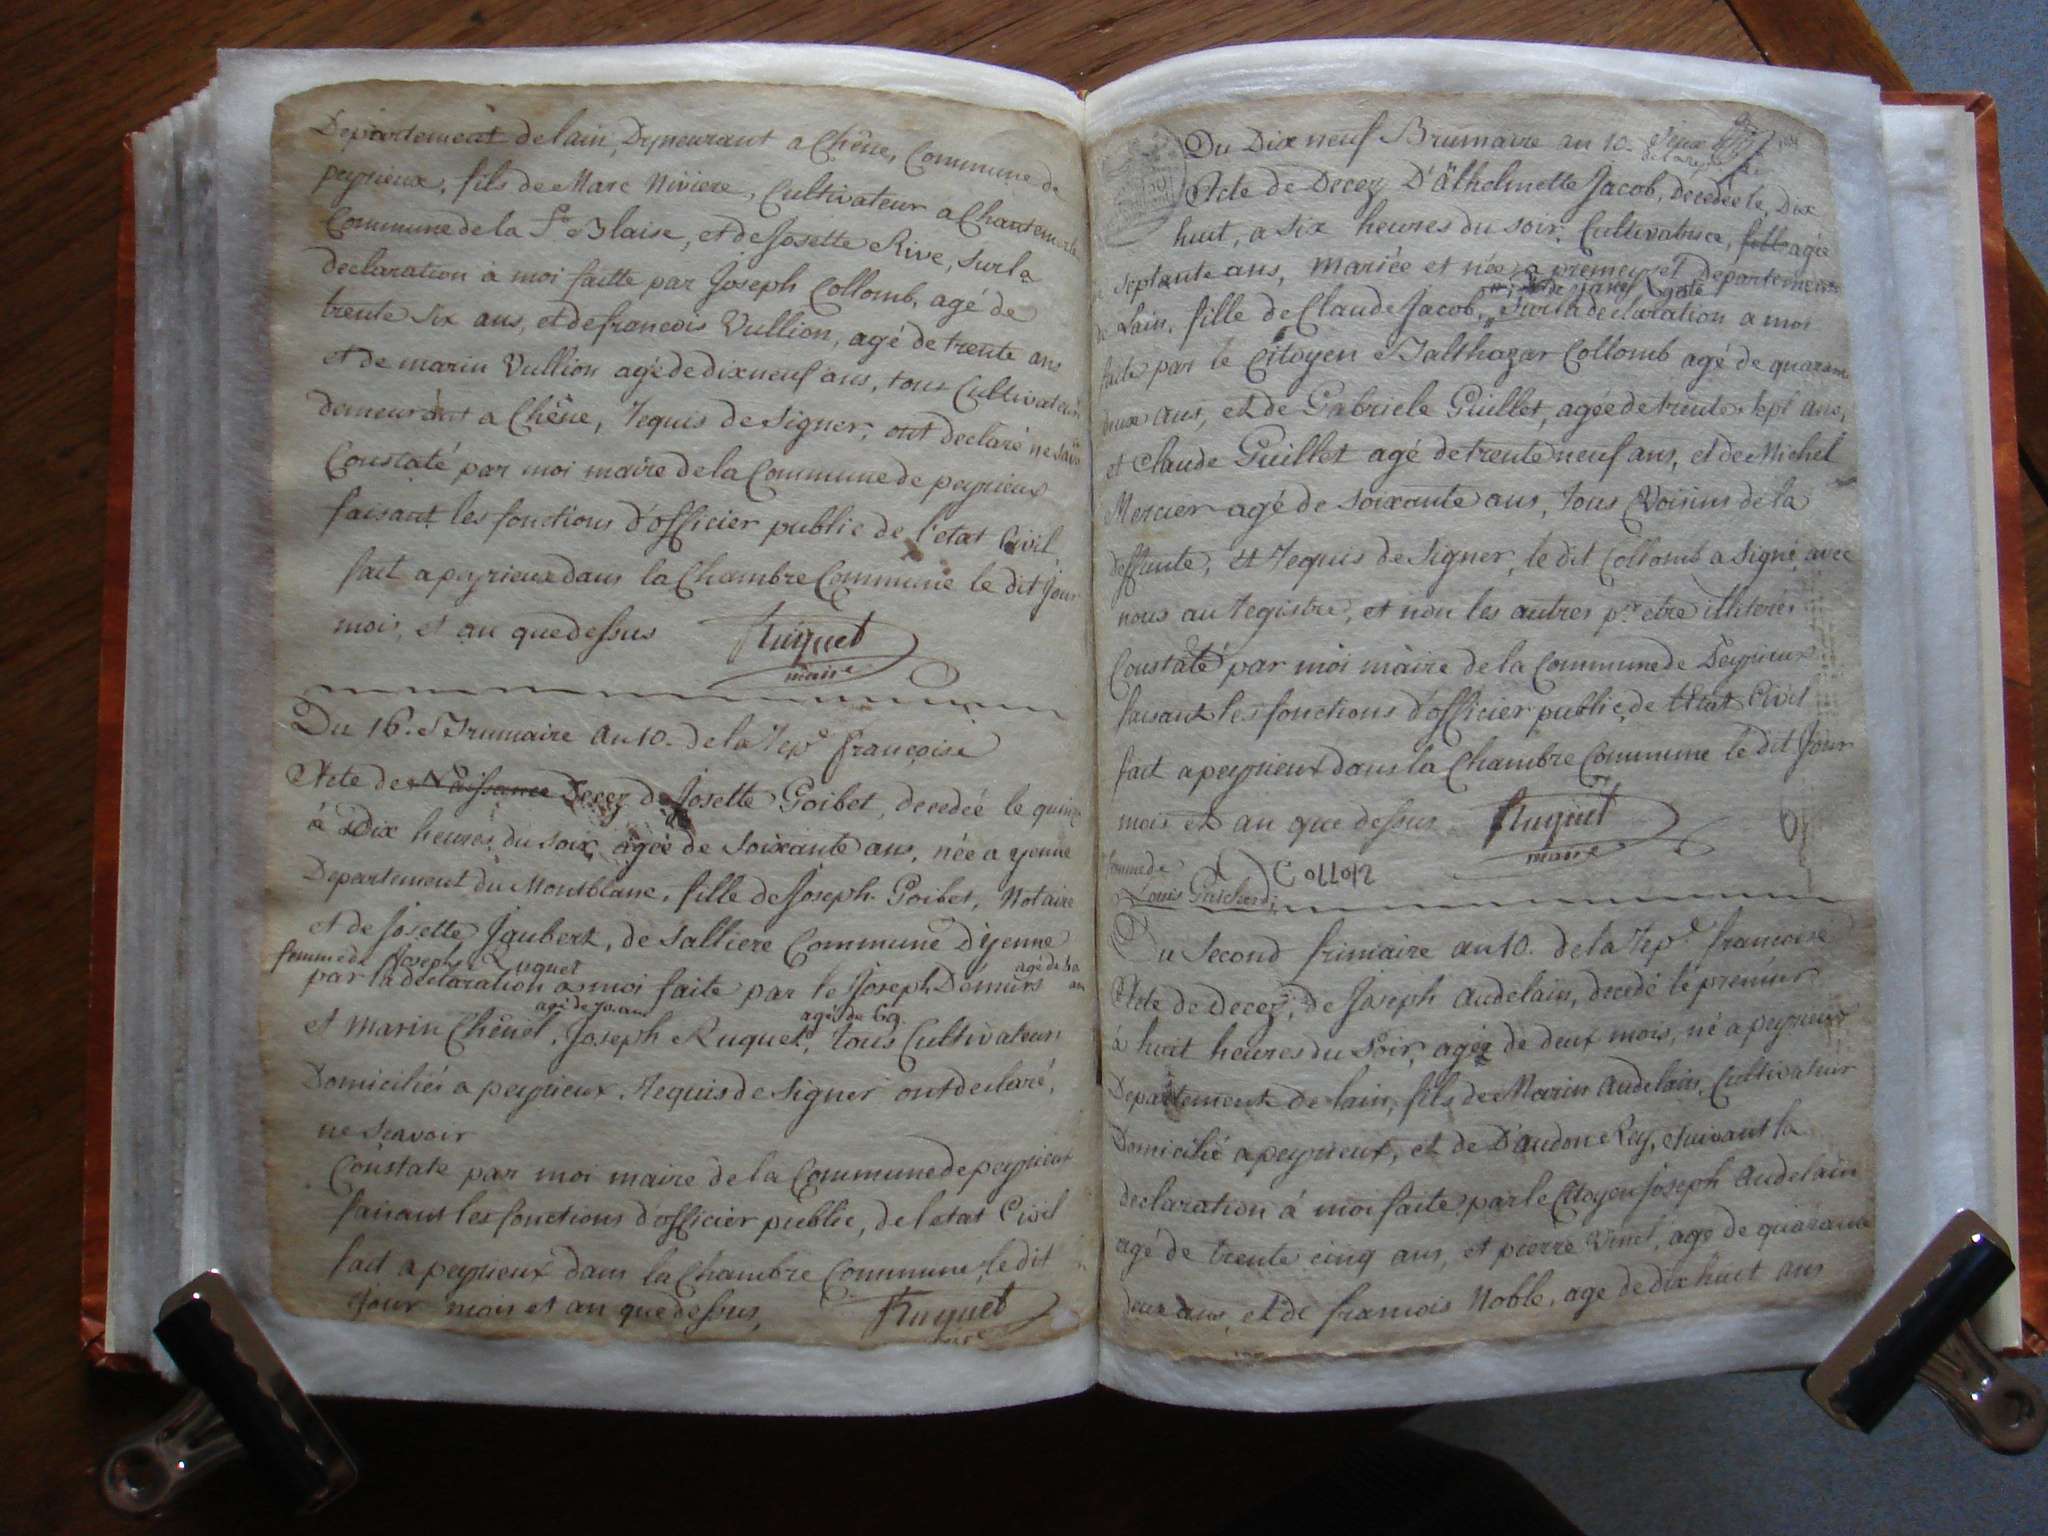 Departement de lain, Demeurant a Chêne, Commune de
peyrieux, fils de Marc Niviere, Cultivateur a Chantemerle
Commune de la St Blaise, et de Josette Rive, sur la
declaration a moi faitte par Joseph Collomb, agé de
trente six ans, et de francois Vullion, agé de trente ans
et de marin Vullion agé de dix neuf ans, tous Cultivateurs
demeurant a Chêne, Requis de signer, ont declaré ne savo
Constaté par moi maire de la Commune de peyrieux
faisant les fonctions d'officier public de l'etat Civil
fait a peyrieux dans la Chambre Commune le dit jour
mois et an que dessus Ruquet
maire
Du 16. Brumaire an 10. de la Repe. françoise
Acte de Naissance Decez de Josette Goibet, decedée le quinze
à Dix heures du soir, agée de soixante ans, née a yenne
Departement du Montblanc, fille de Joseph Goibet, Notaire
et de Josette Jaubert, de Salliere Commune D'yenne
femme de Joseph Ruquet
par la declaration a moi faite par le Joseph Demurs agé de
agé de 70. ans agé de 69.
et Marin Chênet, Joseph Ruquet, tous Cultivateurs
Domiciliés a peyrieux, Requis de signer ont declaré,
ne scavoir
Constaté par moi maire de la Commune de peyrieux
faisant les fonctions d'officier public, de l'etat Civil
fait a peyrieux dans la Chambre Commune, le dit
jour mois et an que dessus, Ruquet
maire
Du Dix neuf Brumaire an 10.
Acte de Decez D'Atholmette Jacob, decedée le, Dix
huit, a six heures du soir, Cultivatrice, fille agée
septante ans, mariée et née a premeyzel Departement
de Lain, fille de Claude Jacob, sur la declaration a moi
faite par le Citoyen Balthazar Collomb agé de quarante
deux ans, et de Gabriele Guillet, agée de trente sept ans,
et Claude Guillet agé de trente neuf ans, et de Michel
Mercier agé de soixante ans, tous Voisins de la
deffunte, et Requis de signer, le dit Collomb a signé, avec
nous au Registre, et non les autres pr. etre illiterés
Constaté par moi maire de la Commune de Peyrieux
faisant les fonctions d'officier public, de l'Etat Civil
fait a peyrieux dans la Chambre Commune le dit Jour
mois et an que dessus Ruquet
maire
femme de
Louis Guichard
Du Second frimaire an 10. de la Repe. francoise
Acte de Decez, de Joseph Audelain, decedé le premier
à huit heures du soir, agé de deux mois, né a peyrieux
Departement de lain, fils de Marin Audelain, Cultivateur
Domicilié a peyrieux, et de D'audon Rey, suivant la
declaration à moi faite par le Citoyen Joseph Audelain
agé de trente cinq ans, et pierre Vinet, agé de quarante
deux ans, et de francois Noble, agé de dix huit ans